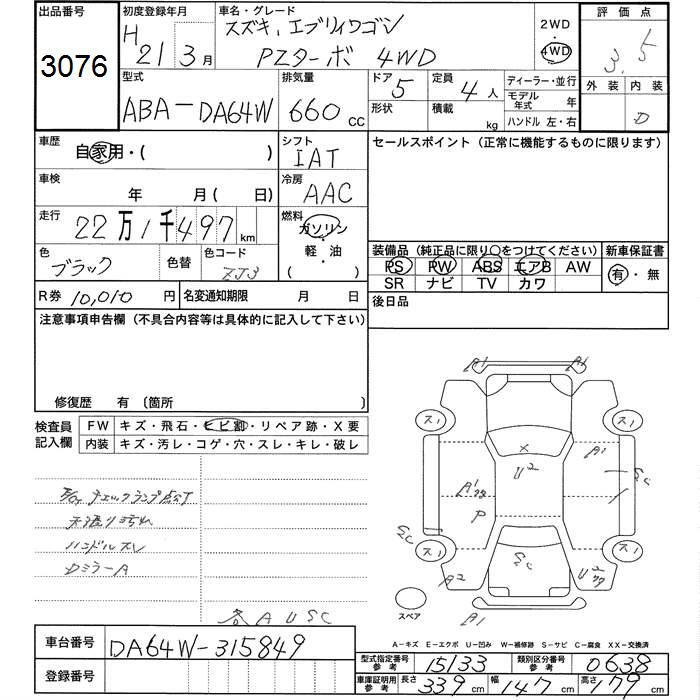 出品番号
3076
初度登録年月
H 21 3月
車名・グレード
スズキ,エブリィワゴン
PZターボ 4WD
2WD
・
4WD
評価点
3.5
外装 内装
D
型式
ABA-DA64W
排気量
660 cc
ドア 5
形状
定員 4人
積載 kg
ディーラー・並行
モデル年式 年
ハンドル 左・右
車歴
自家用・( )
シフト
IAT
セールスポイント (正常に機能するものに限ります)
車検
年 月( 日)
冷房
AAC
走行
22万1千497km
燃料
ガソリン
・
軽油
( )
色
ブラック
色替
色コード
ZJ3
装備品 (純正品に限り○をつけてください)
PS PW ABS エアB AW
SR ナビ TV カワ
新車保証書
有・無
R券 10,010円
名変通知期限 月 日
後日品
注意事項申告欄 (不具合内容等は具体的に記入して下さい)
修復歴 有 〔箇所 〕
検査員記入欄
FW キズ・飛石・ヒビ割・リペア跡・X要
内装 キズ・汚レ・コゲ・穴・スレ・キレ・破レ
チェックランプ点灯
天張り汚れ
ハンドルスレ
DミラーA
各AUSC
A1 A1
ス1 ス1
A1
X
U2
P
A2
U2
ス1 ス1
A1
スペア
A-キズ E-エクボ U-凹み W-補修跡 S-サビ C-腐食 XX-交換済
車台番号 DA64W-315849
登録番号
型式指定番号参考 15133
類別区分番号参考 0638
車庫証明用参考 長さ 339cm 幅 147cm 高さ 179cm